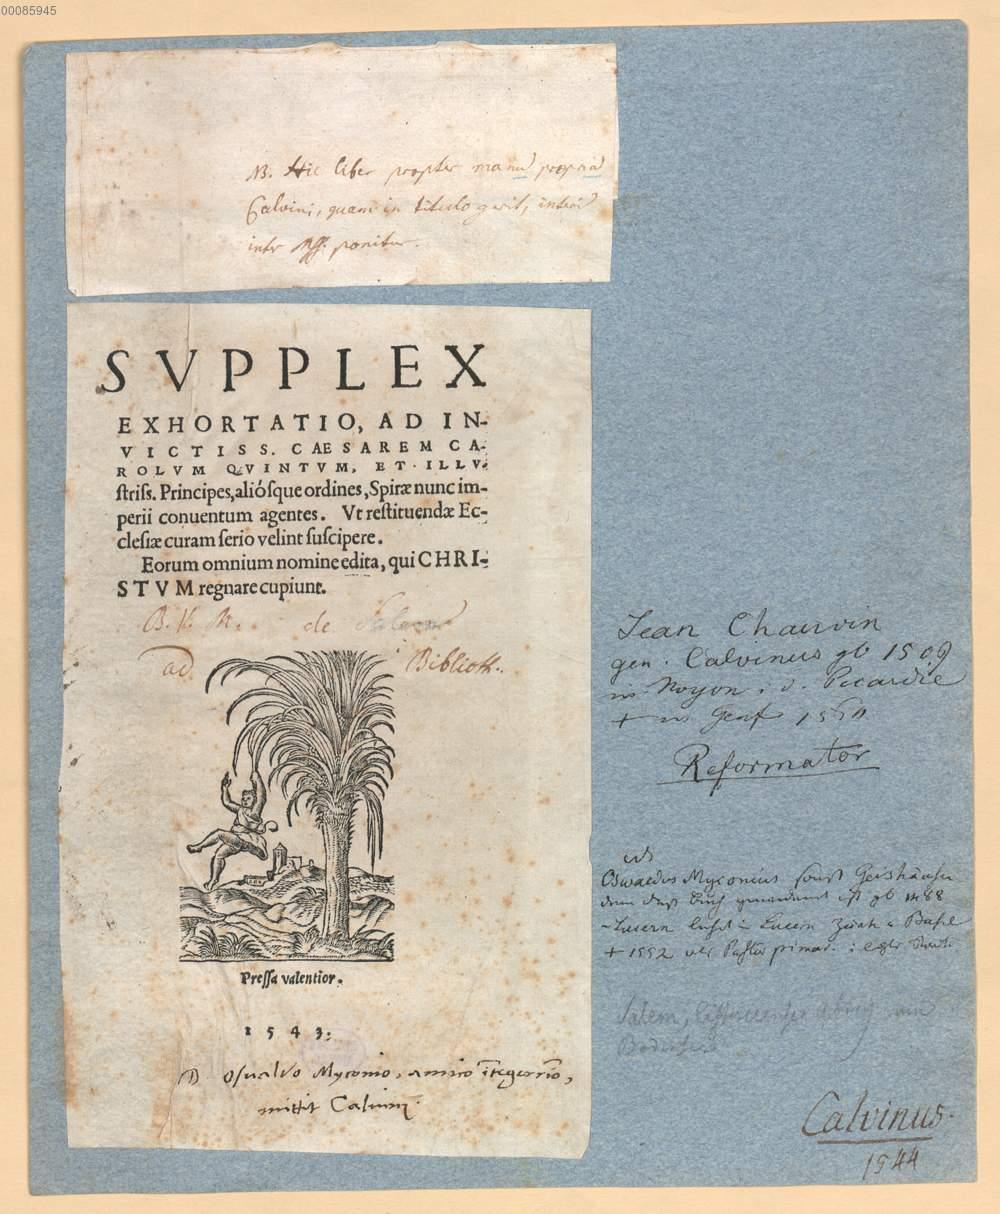 00085945
NB. Hic liber propter manū propriā
Calvini, quam in titulo gerit,
inter Mss. ponitur.
SVPPLEX
EXHORTATIO, AD IN-
VICTISS. CAESAREM CA-
ROLVM QVINTVM, ET ILLV-
ſtriſs. Principes, aliósque ordines, Spiræ nunc im-
perii conuentum agentes. Vt reſtituendæ Ec-
cleſiæ curam ſerio velint ſuſcipere.
Eorum omnium nomine edita, qui CHRI-
STVM regnare cupiunt.
B. V. M. de Salem
ad Biblioth.
Preſſa valentior.
1543.
D Osualdo Myconio, amico ītegerrīo,
mittit Caluinꝰ
Jean Chauvin
gen. Calvinus gb 1509
in Noyon i. d. Picardie
+ in Genf 1564
Reformator
Oswaldus Myconius sonst Geishäuser
dem dieß Buch gb 1488
Luzern Zürich u Basel
+ 1552 als Pastor primar.
Salem,
Calvinus.
1544